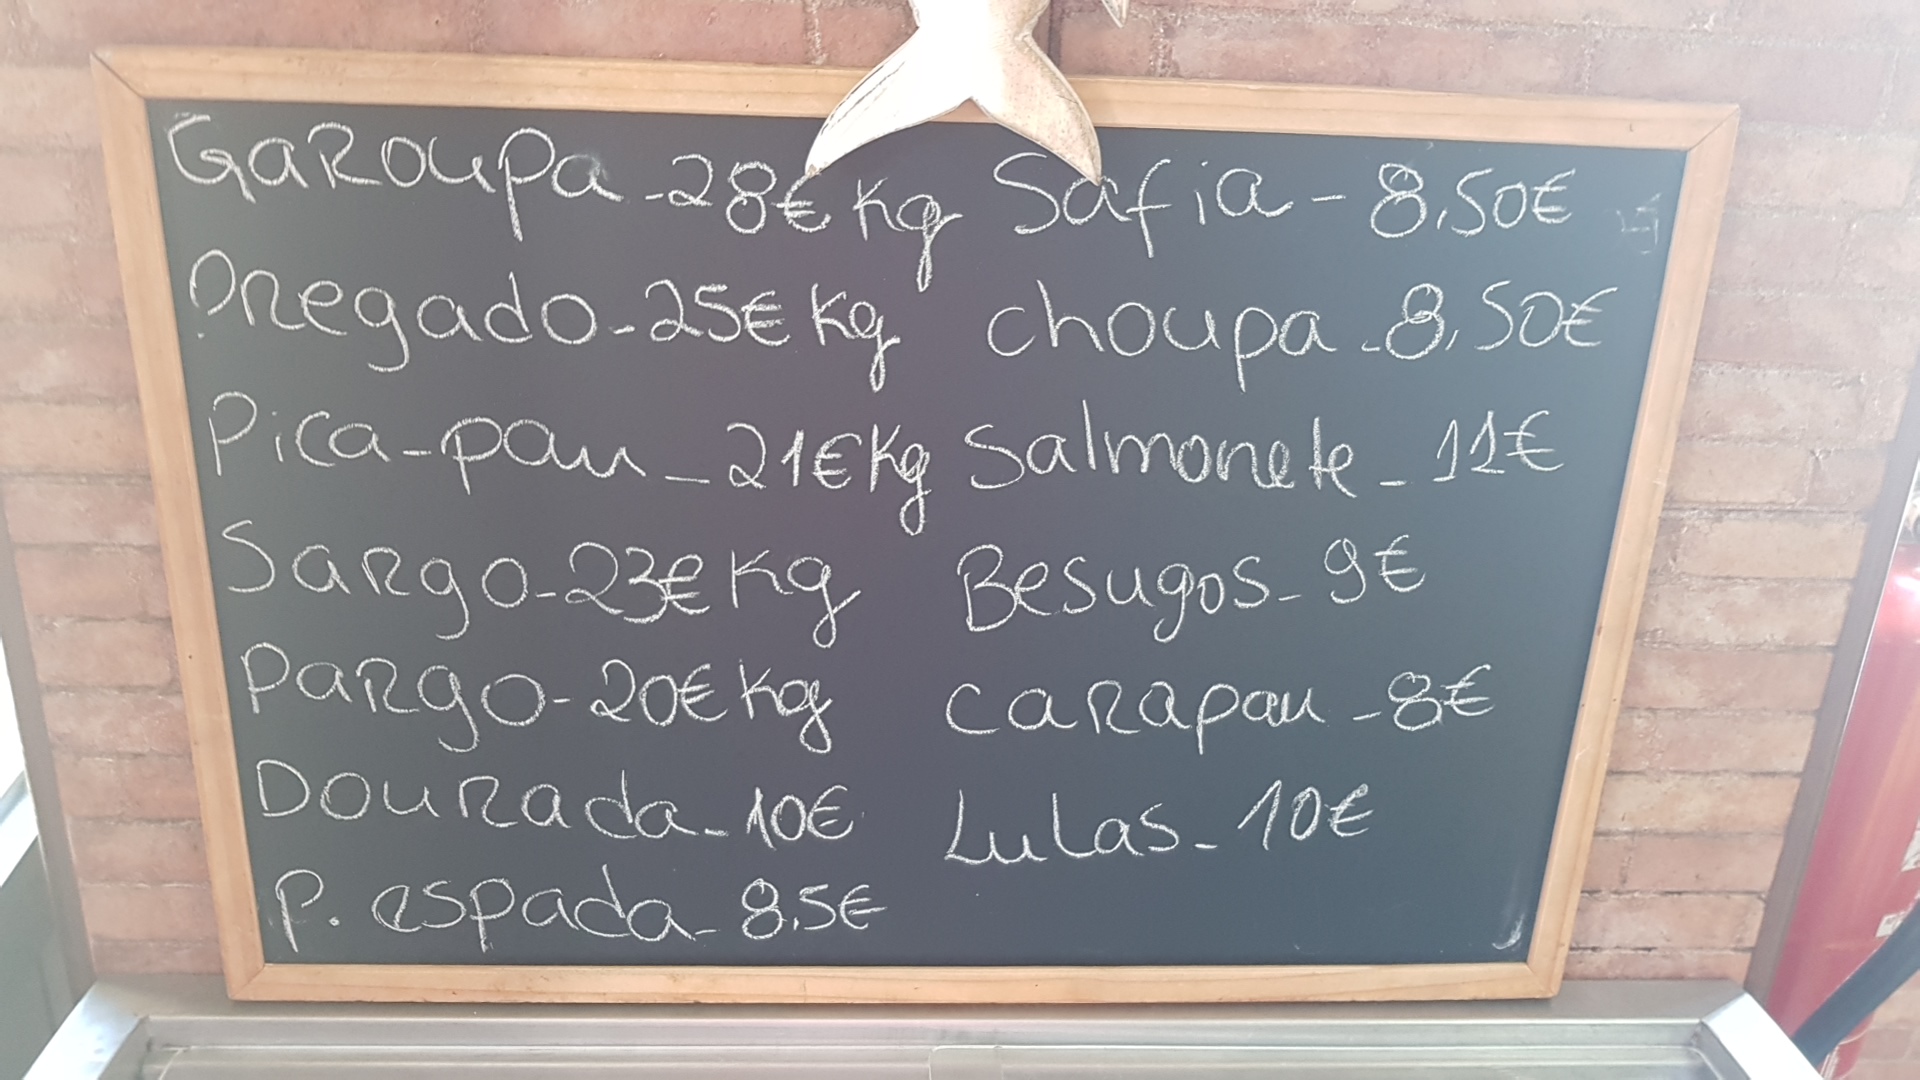 Garoupa - 28€ Kg
Pregado - 25€ Kg
Pica-pau - 21€ Kg
Sargo - 23€ Kg
Pargo - 20€ Kg
Dourada - 10€
P. espada - 8.5€
Safia - 8,50€
choupa - 8,50€
Salmonete - 12€
Besugos - 9€
carapau - 8€
Lulas - 10€